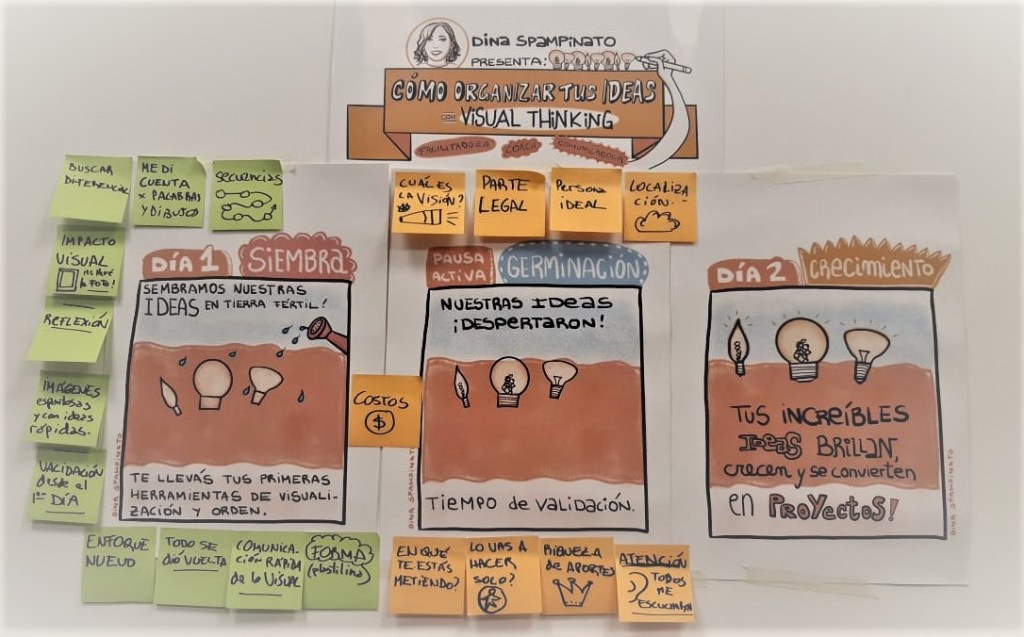 DINA SPAMPINATO
PRESENTA:
CÓMO ORGANIZAR TUS IDEAS
CON VISUAL THINKING
FACILITADORA
COACH
COMUNICADORA
BUSCAR
DIFERENCIAL
ME DI
CUENTA
x PALABRAS
Y DIBUJO
SECUENCIAS
CUÁL ES
LA VISIÓN?
PARTE
LEGAL
Persona
iDEAL
LOCALIZA
CIÓN..
IMPACTO
VISUAL
la FOTO!
REFLEXIÓN
IMÁGENES
espantosas
y con ideas
rápidas.
VALIDACIÓN
desde el
1er DÍA
DÍA 1
SIEMBRA
SEMBRAMOS NUESTRAS
IDEAS EN TIERRA FÉRTIL!
TE LLEVÁS TUS PRIMERAS
HERRAMIENTAS DE VISUALI-
ZACIÓN Y ORDEN.
DINA SPAMPINATO
COSTOS
$
PAUSA
ACTIVA
GERMINACIÓN
NUESTRAS IDEAS
¡DESPERTARON!
TIEMPO de VALIDACIÓN.
DINA SPAMPINATO
DÍA 2
CRECIMIENTO
TUS INCREÍBLES
IDEAS BRILLAN,
crecen y se convierten
en PROYECTOS!
DINA SPAMPINATO
ENFOQUE
NUEVO
TODO SE
dió VUELTA
COMUNICA-
CIÓN RÁPIDA
de lo VISUAL
FORMA
(plastilina)
EN QUÉ
TE ESTÁS
METIENDO?
LO VAS A
HACER
SOLO?
RIQUEZA
de APORTES
ATENCIÓN
TODOS
ME
ESCUCHARON